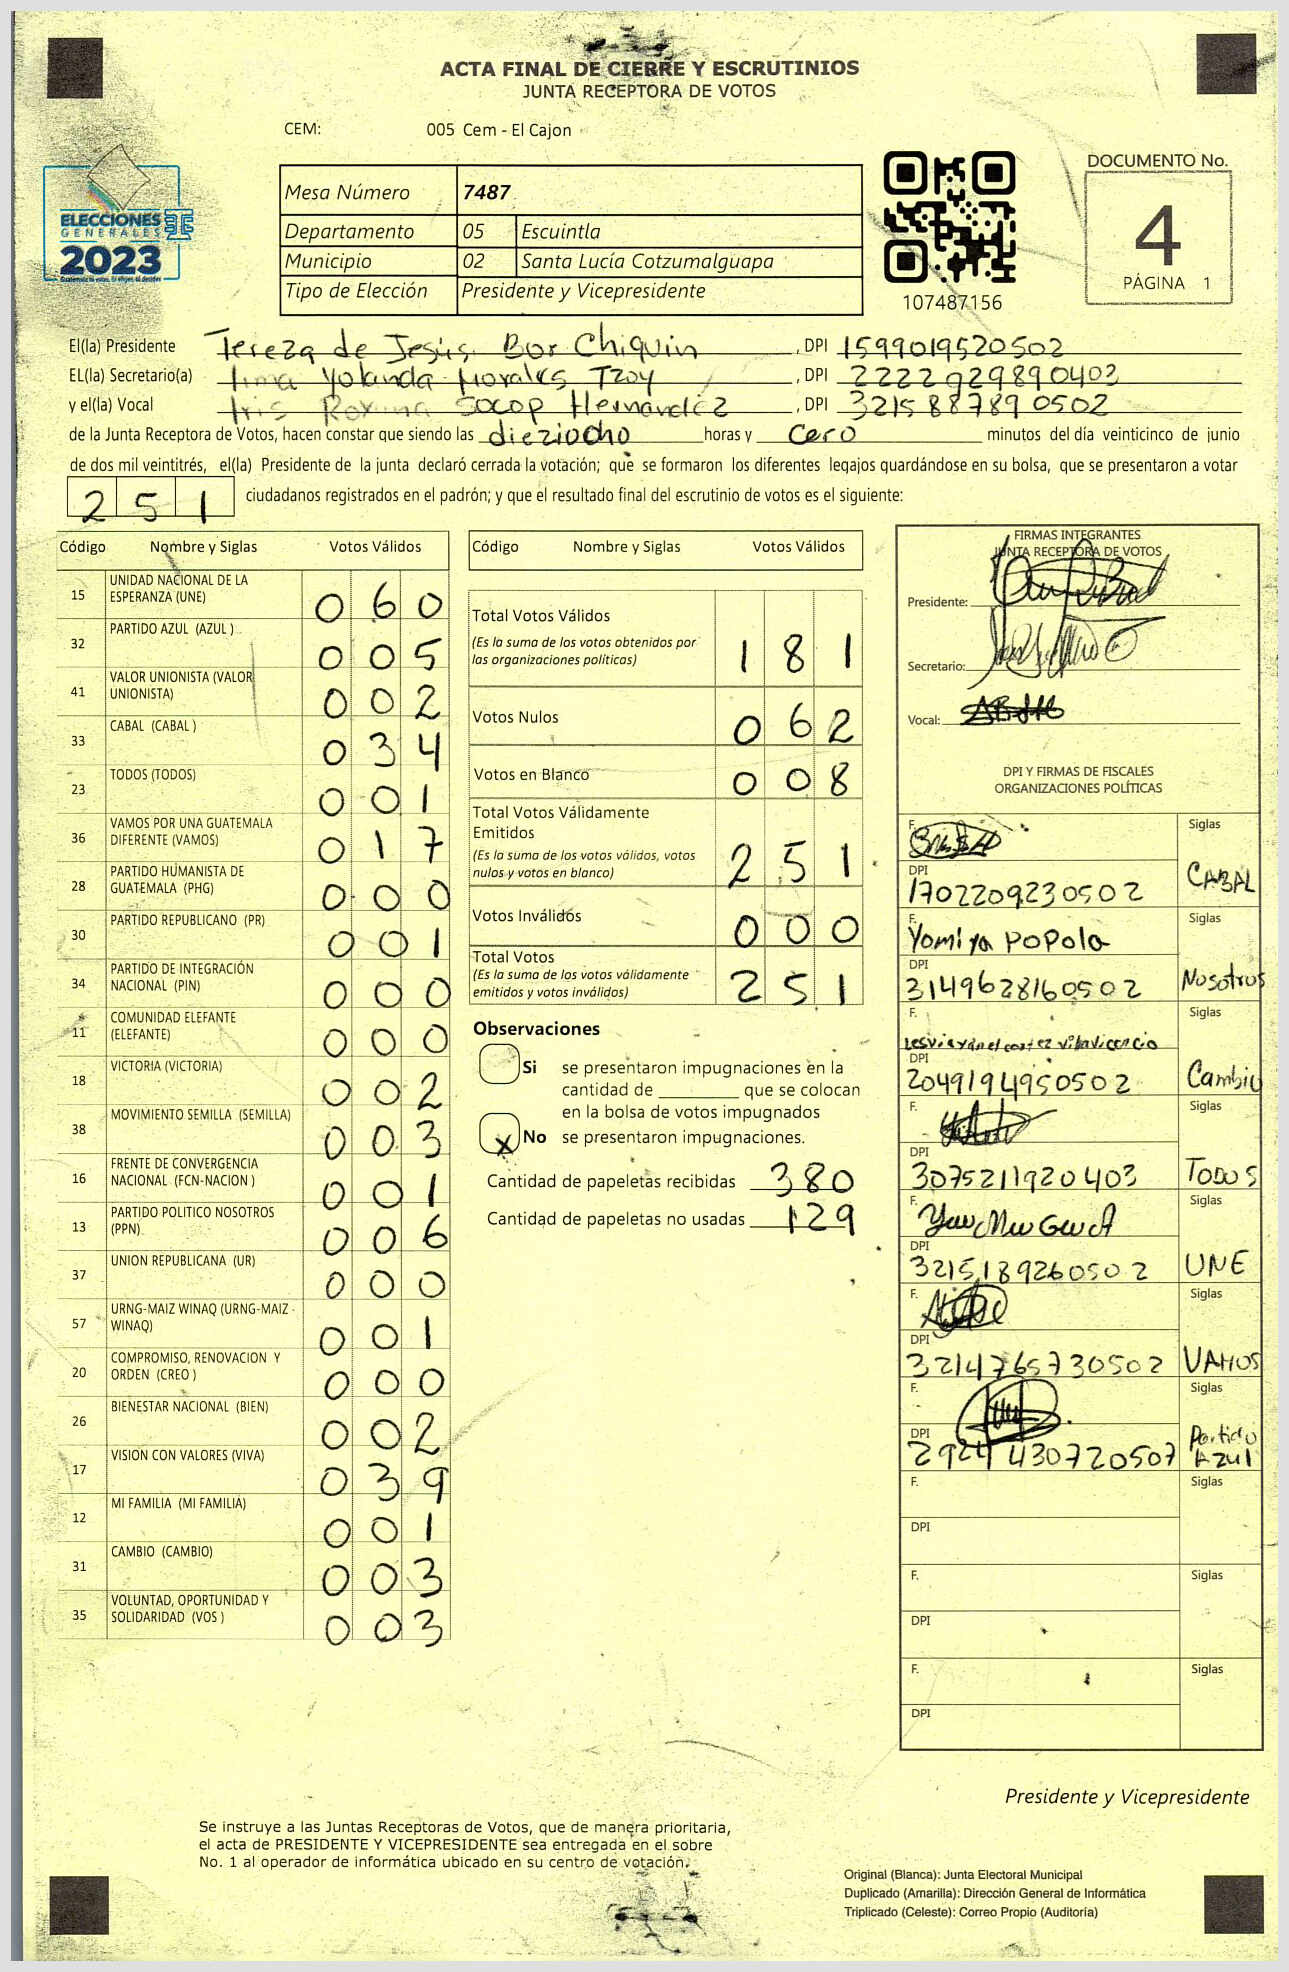 ACTA FINAL DE CIERRE Y ESCRUTINIOS
JUNTA RECEPTORA DE VOTOS
CEM: 005 Cem - El Cajon
ELECCIONES
GENERALES
2023
Mesa Número 7487
Departamento 05 Escuintla
Municipio 02 Santa Lucía Cotzumalguapa
Tipo de Elección Presidente y Vicepresidente
107487156
DOCUMENTO No.
4
PÁGINA 1
El(la) Presidente Tereza de Jesús Bor Chiquin, DPI 1599019520502
EL(la) Secretario(a) Irma Yolanda Morales Tzoy, DPI 2222929890403
y el(la) Vocal Iris Roxana Socop Hernandez, DPI 3215887890502
de la Junta Receptora de Votos, hacen constar que siendo las dieziocho horas y cero minutos del día veinticinco de junio
de dos mil veintitrés, el(la) Presidente de la junta declaró cerrada la votación; que se formaron los diferentes legajos quardándose en su bolsa, que se presentaron a votar
251 ciudadanos registrados en el padrón; y que el resultado final del escrutinio de votos es el siguiente:
Código Nombre y Siglas Votos Válidos
15 UNIDAD NACIONAL DE LA ESPERANZA (UNE) 060
32 PARTIDO AZUL (AZUL ) 005
41 VALOR UNIONISTA (VALOR UNIONISTA) 002
33 CABAL (CABAL ) 034
23 TODOS (TODOS) 001
36 VAMOS POR UNA GUATEMALA DIFERENTE (VAMOS) 017
28 PARTIDO HUMANISTA DE GUATEMALA (PHG) 000
30 PARTIDO REPUBLICANO (PR) 001
34 PARTIDO DE INTEGRACIÓN NACIONAL (PIN) 000
11 COMUNIDAD ELEFANTE (ELEFANTE) 000
18 VICTORIA (VICTORIA) 002
38 MOVIMIENTO SEMILLA (SEMILLA) 003
16 FRENTE DE CONVERGENCIA NACIONAL (FCN-NACION ) 001
13 PARTIDO POLITICO NOSOTROS (PPN) 006
37 UNION REPUBLICANA (UR) 000
57 URNG-MAIZ WINAQ (URNG-MAIZ - WINAQ) 001
20 COMPROMISO, RENOVACION Y ORDEN (CREO ) 000
26 BIENESTAR NACIONAL (BIEN) 002
17 VISION CON VALORES (VIVA) 039
12 MI FAMILIA (MI FAMILIA) 001
31 CAMBIO (CAMBIO) 003
35 VOLUNTAD, OPORTUNIDAD Y SOLIDARIDAD (VOS ) 003
Código Nombre y Siglas Votos Válidos
Total Votos Válidos 181
(Es la suma de los votos obtenidos por
las organizaciones políticas)
Votos Nulos 062
Votos en Blanco 008
Total Votos Válidamente
Emitidos 251
(Es la suma de los votos válidos, votos
nulos y votos en blanco)
Votos Inválidos 000
Total Votos 251
(Es la suma de los votos válidamente
emitidos y votos inválidos)
Observaciones
Si se presentaron impugnaciones en la
cantidad de ________ que se colocan
en la bolsa de votos impugnados
X No se presentaron impugnaciones.
Cantidad de papeletas recibidas 380
Cantidad de papeletas no usadas 129
FIRMAS INTEGRANTES
JUNTA RECEPTORA DE VOTOS
Presidente:
Secretario:
Vocal:
DPI Y FIRMAS DE FISCALES
ORGANIZACIONES POLÍTICAS
F. Siglas
DPI 1702209230502 CABAL
F. Yomira Popola Siglas
DPI 3149628160502 Nosotros
F. Siglas
DPI 2049194950502 Cambio
F. Siglas
DPI 3075211920403 TODOS
F. Siglas
DPI 3215189260502 UNE
F. Siglas
DPI 3214765730502 VAMOS
F. Siglas
DPI 2924430720507 Partido Azul
F. Siglas
DPI
F. Siglas
DPI
F. Siglas
DPI
Presidente y Vicepresidente
Se instruye a las Juntas Receptoras de Votos, que de manera prioritaria,
el acta de PRESIDENTE Y VICEPRESIDENTE sea entregada en el sobre
No. 1 al operador de informática ubicado en su centro de votación.
Original (Blanca): Junta Electoral Municipal
Duplicado (Amarilla): Dirección General de Informática
Triplicado (Celeste): Correo Propio (Auditoría)